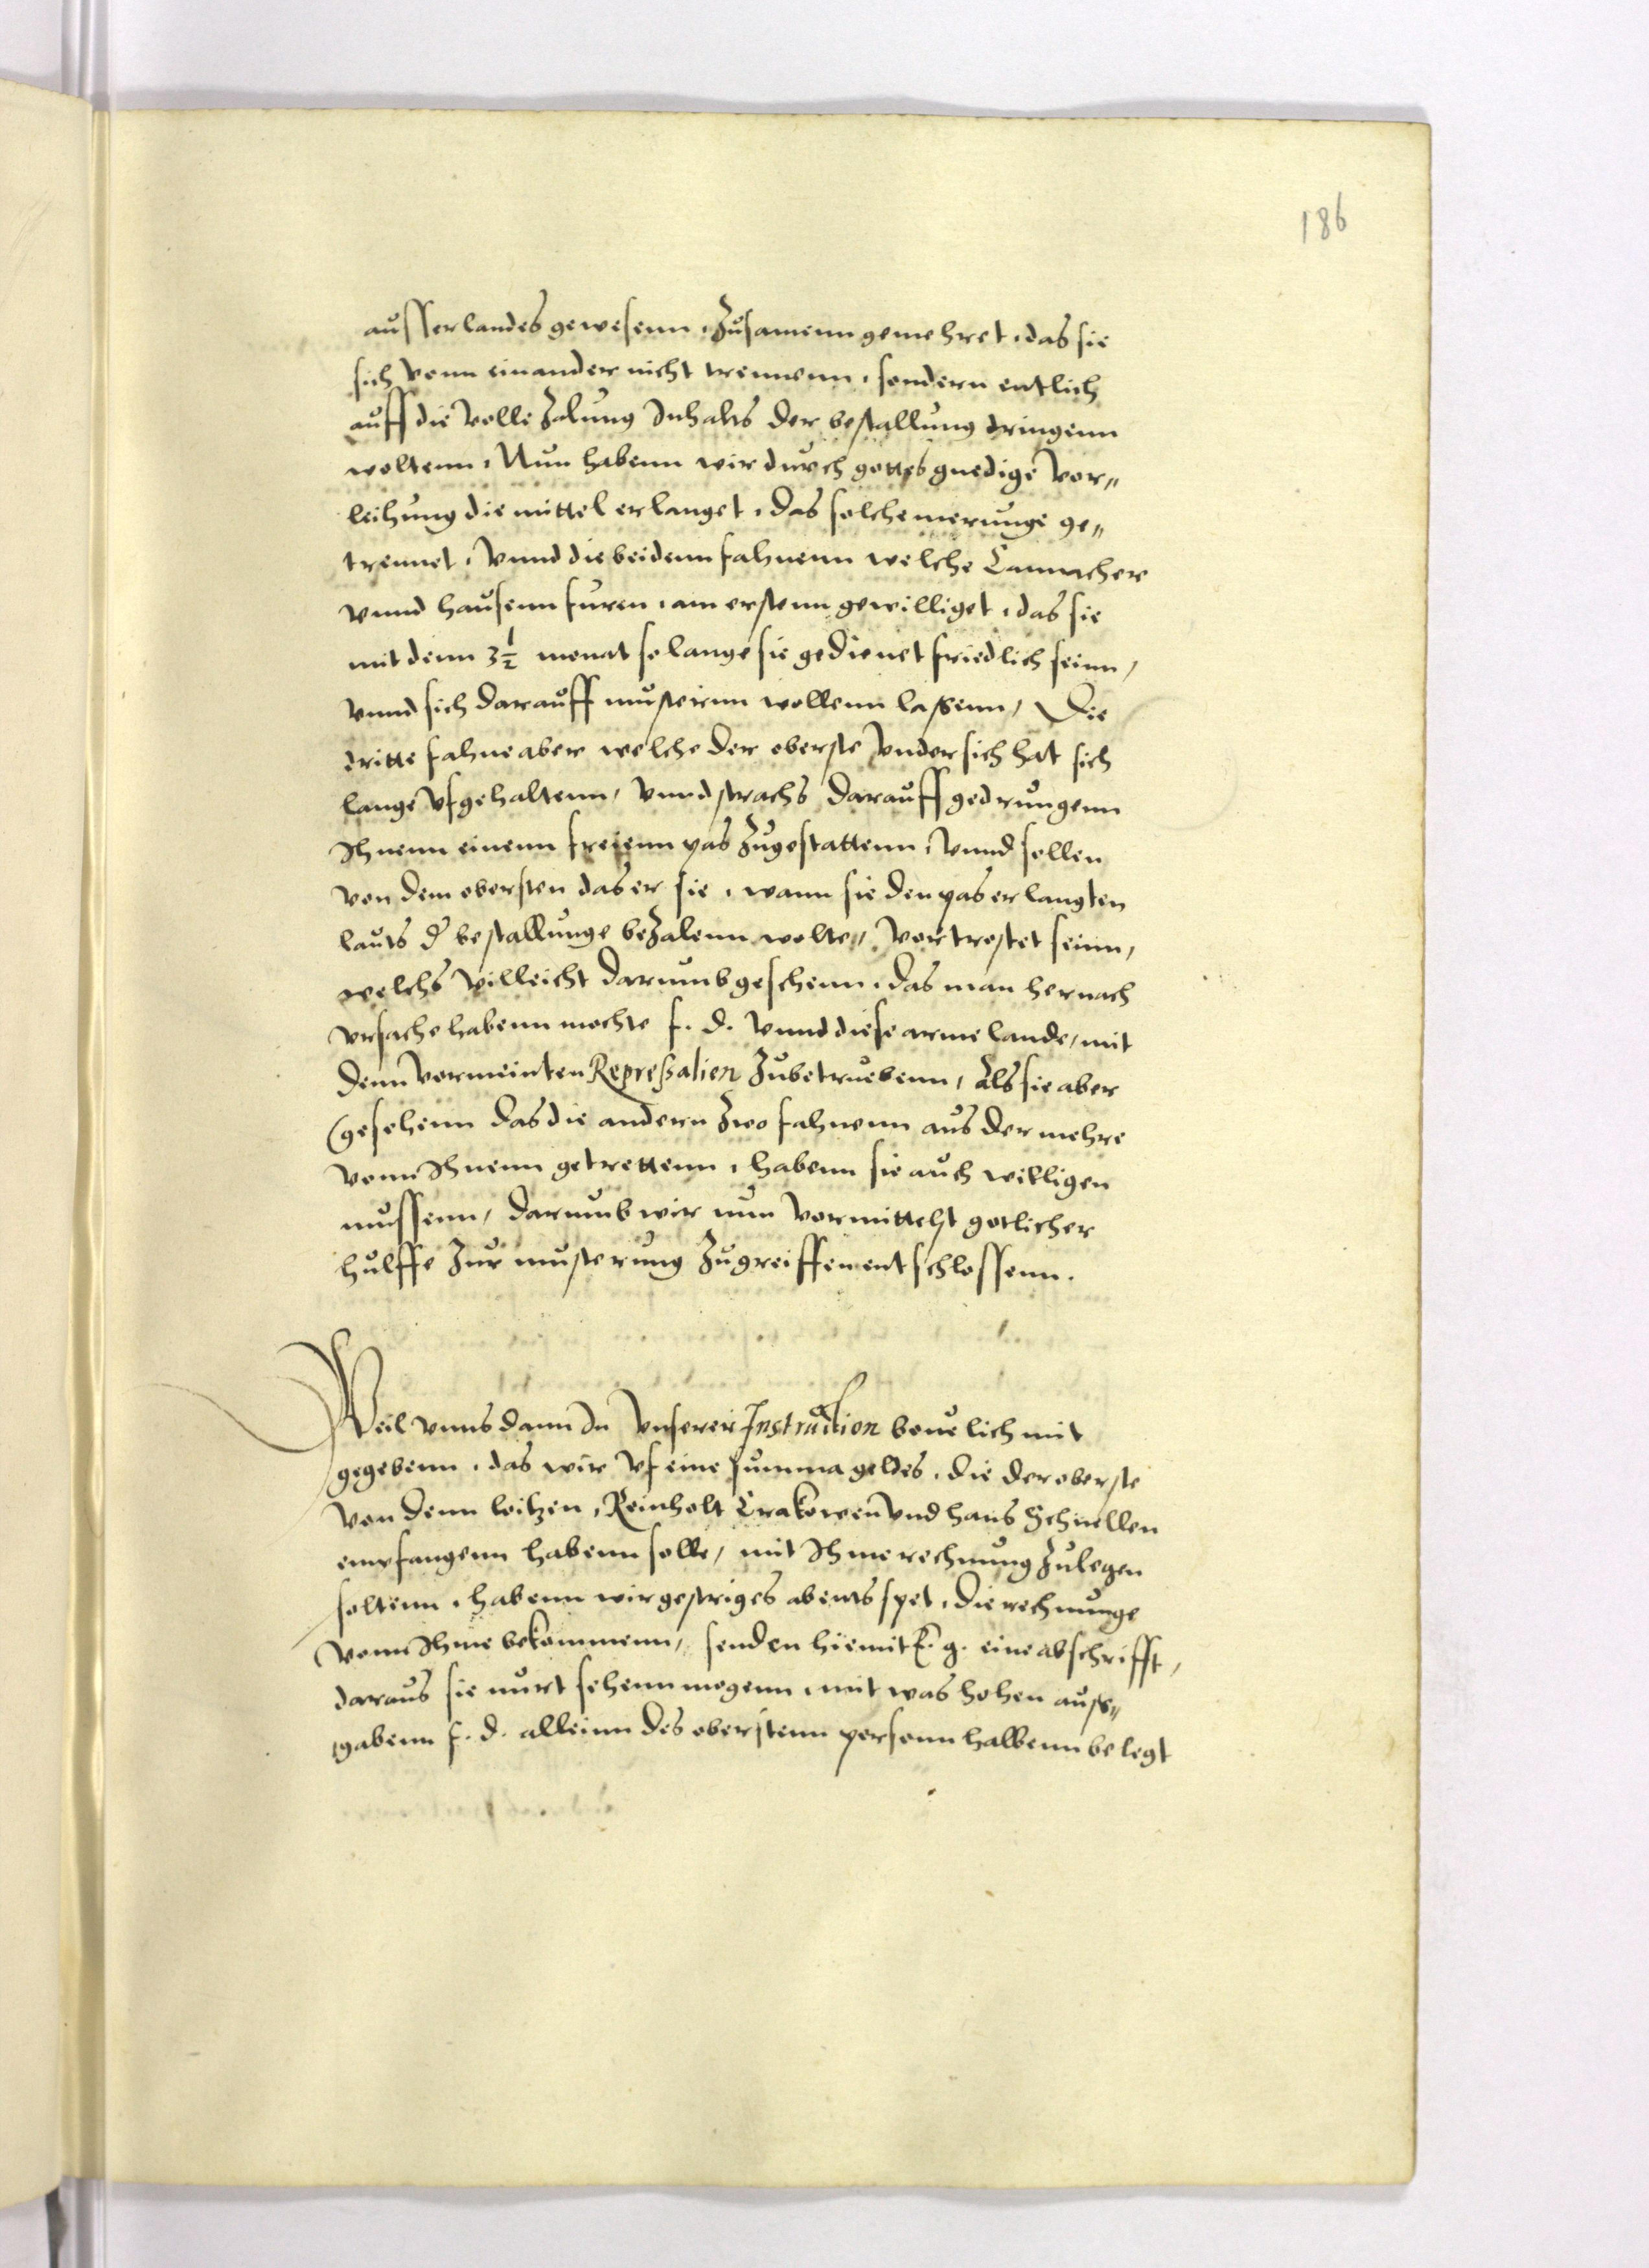 186
ausserlandes gewesenn, Zusamenn gemehret, das sie
sich vonn einander nicht trennenn, sondern entlich
auff die volle Zalung Inhalts der bestallung dringenn
woltenn, Nun habenn wir durch gottes gnedige vor„
leihung die mittel erlanget, das solche merunge ge„
trennet, vnnd die beidenn fahnenn welche Canmacher
vnnd hausenn furen, am erstenn gewilliget, das sie
mit denn 3½ monat so lange sie gedienet friedlich seinn,
vnnd sich darauff musternn wollenn laßenn, Die
dritte fahne aber welche der oberste vnder sich hat sich
lange vfgehaltenn, vnnd stracks darauff gedrungenn
Ihnenn einenn freienn pas Zugestattenn, vnnd sollen
von dem obersten das er sie, wann sie den pas erlangten
lauts d' bestallunge beZalenn wolte„ vortrostet seinn,
welchs villeicht darumb geschenn, das man hernach
vrsache habenn mochte f. d. vnnd diese arme lande, mit
denn vormeinten Repreßalien Zubetruebenn, Als sie aber
gesehenn das die andern Zwo fahnenn aus der mehre
vonn Ihnenn getrettenn, habenn sie auch willigen
mussenn, darumb wir nun vormittelst gotlicher
hulffe Zur musterung Zugreiffen entschlossenn.
Weil vnns dann In vnserer Instruction beuelich mit
gegebenn, das wir vf eine summa geldes, die der oberste
von denn loitzen, Reinholt Crakowen vnd hans Schnellen
empfangenn habenn solle, mit Ihme rechnung Zulegen
soltenn, habenn wir gestriges abents spet, die rechnunge
vonn Ihme bekommenn, senden hiemit E. g. eine abschrifft,
daraus sie nurt sehenn mogenn, mit was hohen aus„
gabenn f. d. alleinn des oberstenn personn halbenn belegt